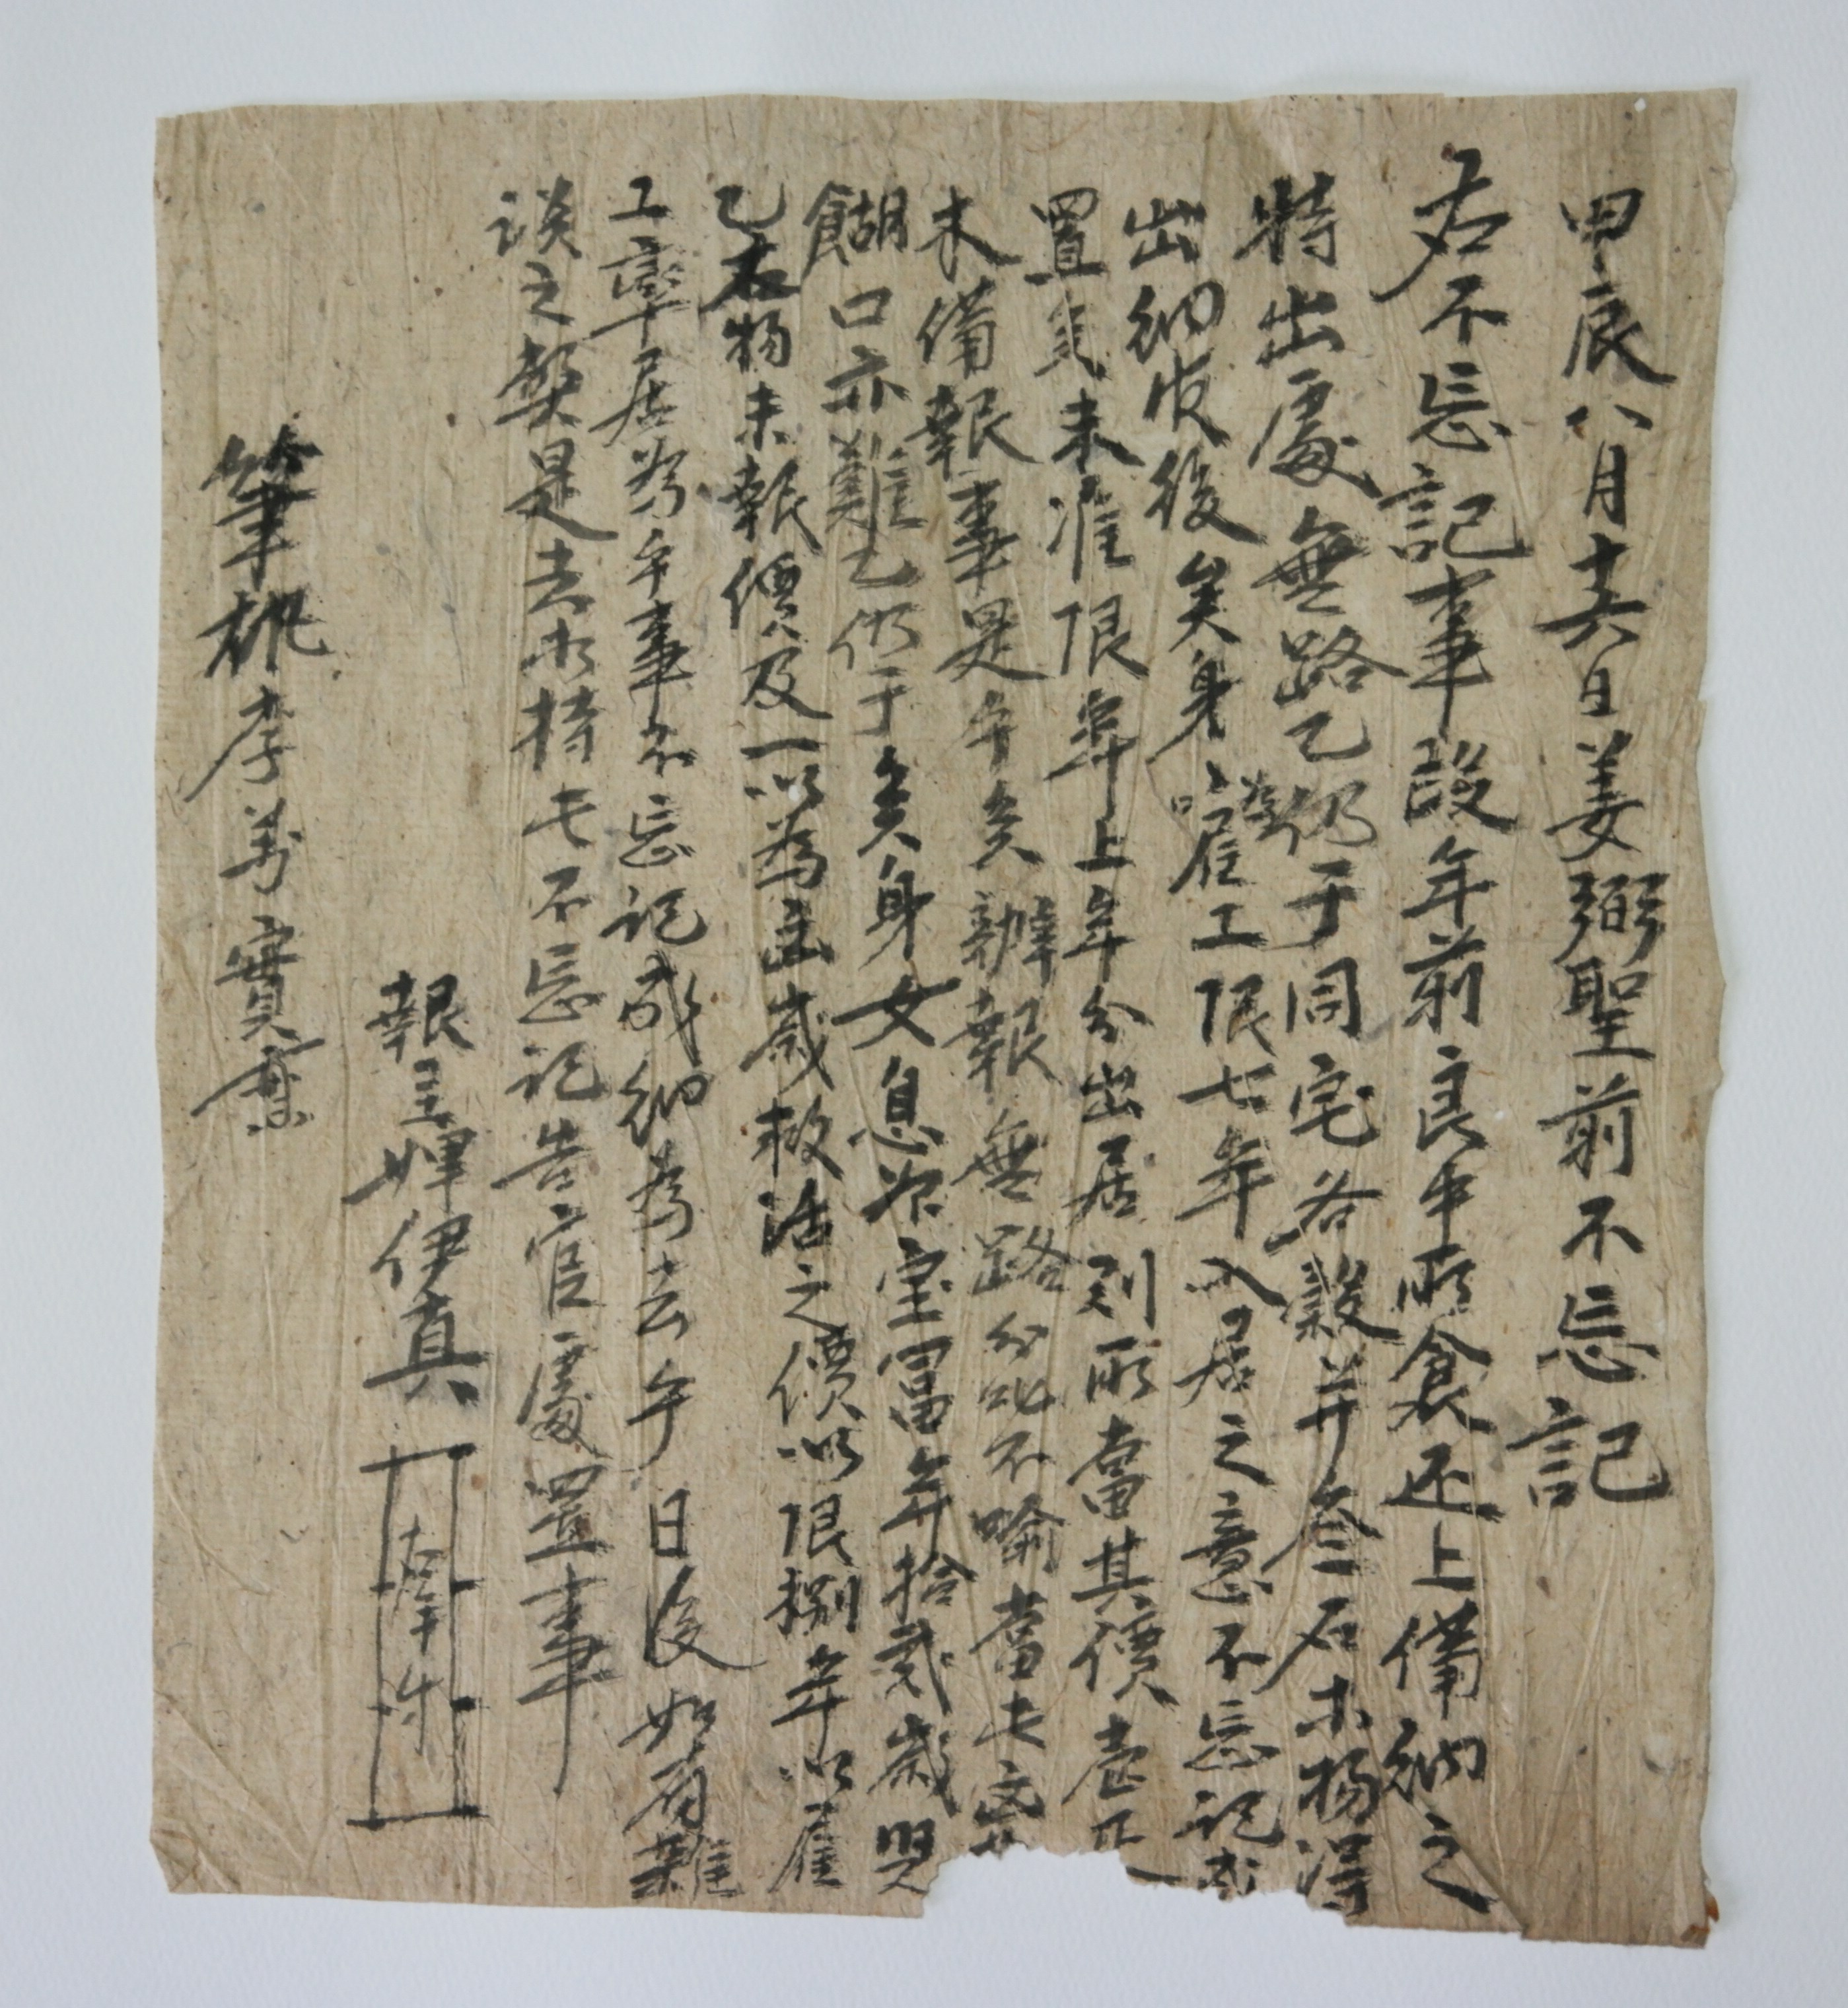 甲辰八月十六日姜弼聖前不忘記
右不忘記事段年前良中所食还上備納之
特出處無路乙仍于同宅各穀幷叄石未楊得
出納次後矣身雇工限七年入居之意不忘記成
置矣未准限年上年分出居則所當其價壹疋
未備報事是乎矣辦報無路分叱不喩當此
餬口亦難乙仍于矣身女息 年拾貳歲
乙右物未報價及一以爲 歲救活之價以限捌年以雇
工率居爲乎事不忘記成納爲去乎日後如有雜
談之弊是去 持此不忘記告官處置事
報主婢伊眞
右手寸
筆執李萬實